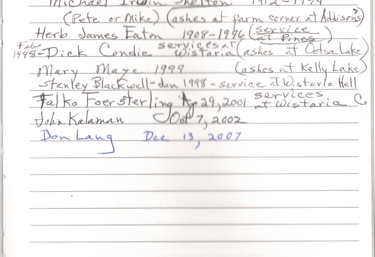 Michael Irwin Skelton 1912-1994
(Pete or Mike) (ashes at farm corner at Addison's?)
Herb James Eaton 1908-1996 (service at Pines)
Feb 1998-Dick Condie services at Wistaria (ashes at Ootsa Lake)
Mary Maze 1999 (ashes at Kelly Lake)
Stanley Blackwell-Jan 1998-service at Wistaria Hall
Falko Foersterling Ap 29, 2001 services at Wistaria
John Kalaman Oct 7, 2002
Don Lang Dec 13, 2007